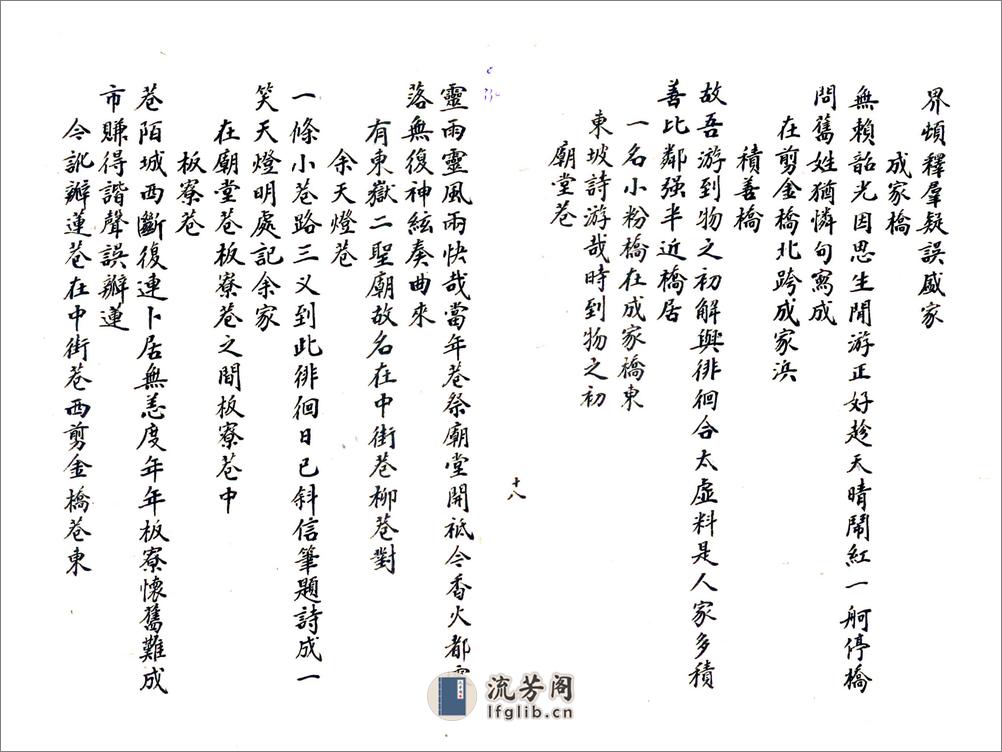 界頓釋羣疑誤盛家
成家橋
無賴韶光因思生閒游正好趁天晴鬧紅一舸停橋
問舊姓猶憐句寫成
在剪金橋北跨成家浜
積善橋
故吾游到物之初解與徘徊合太虛料是人家多積
善比鄰强半近橋居
一名小粉橋在成家橋東
東坡詩游哉時到物之初
廟堂巷
十八
靈雨靈風雨快哉當年巷祭廟堂開祗今香火都
落無復神絃奏曲來
有東嶽二聖廟故名在中街巷柳巷對
余天燈巷
一條小巷路三义到此徘徊日已斜信筆題詩成一
笑天燈明處記余家
在廟堂巷板寮巷之間板寮巷中
板寮巷
巷陌城西斷復連卜居無恙度年年板寮懷舊難成
市賺得諧聲誤瓣蓮
今訛瓣蓮巷在中街巷西剪金橋巷東
流芳阁
lfglib.cn